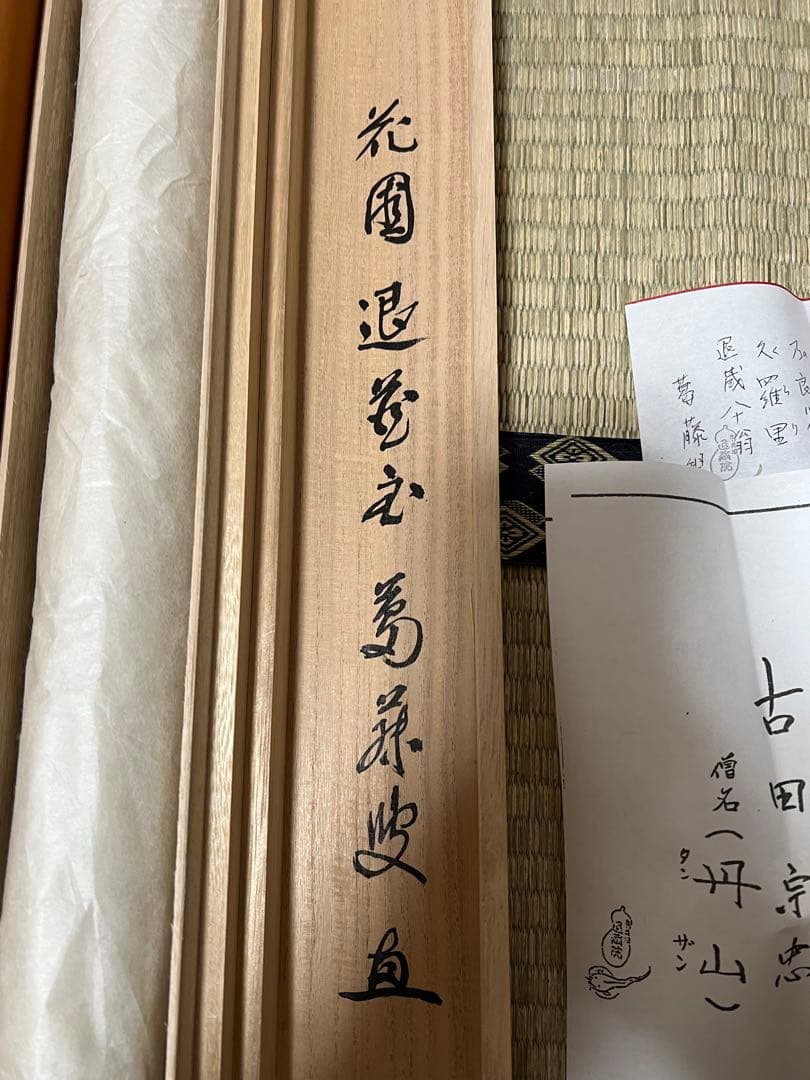 花園 退蔵主 葛藤叟 直
久く羅ら里り
退蔵八十翁
葛藤
古田宗忠
僧名(丹山)
タン ザン
退蔵院